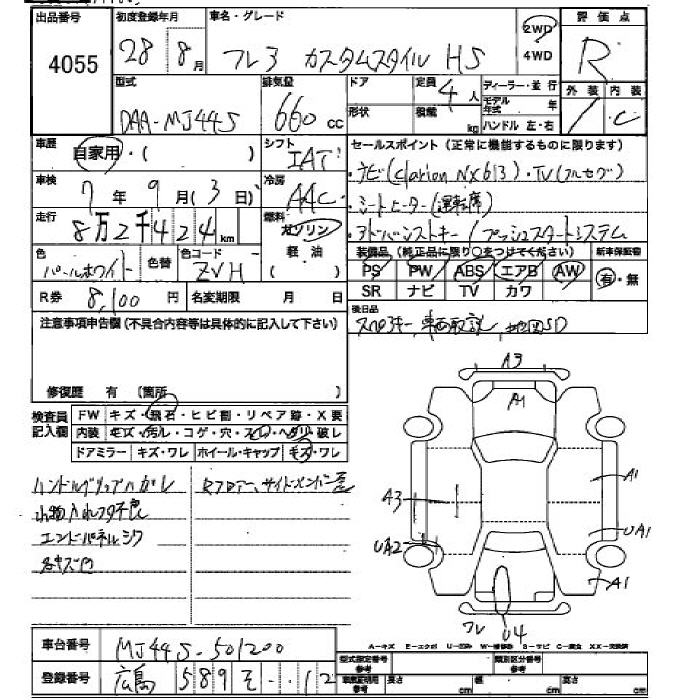 出品番号 初度登録年月 車名・グレード 2WD 評価点
4055 28年8月 フレア カスタムスタイル HS 4WD R
型式 排気量 ドア 定員 4人 ディーラー・並行 外装 内装
DAA-MJ44S 660cc 形状 積載 kg モデル年式 年 ハンドル 左・右 C
車歴 自家用・( ) シフト IAT セールスポイント(正常に機能するものに限ります)
車検 7年9月(3日) 冷房 AAC ・ナビ(Clarion NX613)・TV(フルセグ)
・シートヒーター(運転席)
走行 8万2千424km 燃料 ガソリン 軽油 ・アドバンストキー/プッシュスタートシステム
色 パールホワイト 色替 色コード ZVH 装備品(純正品に限り○をつけてください) 新車保証書
PS PW ABS エアB AW 有・無
R券 8,100円 名変期限 月 日 SR ナビ TV カワ
注意事項申告欄(不具合内容等は具体的に記入して下さい) 後日品
スペアキー 車両取説 地図SD
修復歴 有 (箇所 )
検査員記入欄 FW キズ・飛石・ヒビ割・リペア跡・X要
内装 キズ・汚れ・コゲ・穴・スレ・ヘタリ・破レ
ドアミラー キズ・ワレ ホイール・キャップ キズ・ワレ
ハンドルグリップハガレ
小物入れフタ不良
エンドパネルシワ
各キズ凹
A3
A1
A1
A3
UA1
UA2
A1
U4
A-キズ E-エクボ U-凹み W-補修跡 S-サビ C-腐食 XX-交換済
車台番号 MJ44S-501200
登録番号 広島 589 そ ・・12
型式指定番号 参考 類別区分番号 参考
車庫証明用 参考 長さ cm 幅 cm 高さ cm